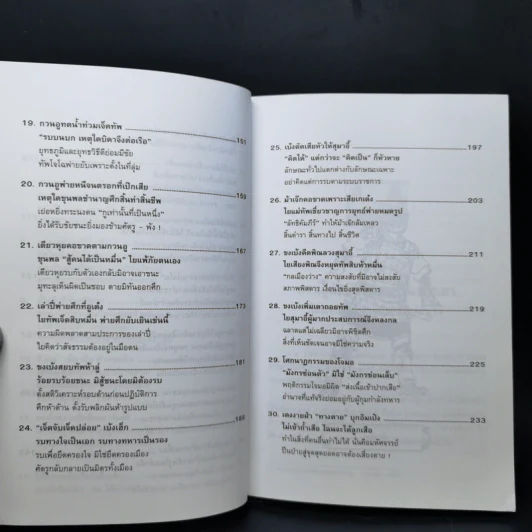 19. กวนอูทดน้ำท่วมเจ็ดทัพ 151
"รบบนบก เหตุใดบิดาจึงต่อเรือ"
ยุทธภูมิและยุทธวิธีดีย่อมมีชัย
ทัพใจไฉพ่ายยับเพราะตั้งในที่ลุ่ม
20. กวนอูพ่ายหนีจนตรอกที่เป๊กเสีย 159
เหตุใดขุนพลชำนาญศึกสิ้นท่าสิ้นชีพ
เย่อหยิ่งทระนงตน "กูเท่านั้นที่เป็นหนึ่ง"
ยิ่งได้รับชัยชนะยิ่งมองข้ามศัตรู - พัง !
21. เตียวหุยคอขาดตามกวนอู
ขุนพล "สู้คนได้เป็นหมื่น" ไยแพ้ภัยตนเอง
เตียวหุยรบกับตัวเองกลับมิอาจเอาชนะ
มุทะลุเห็นผิดเป็นชอบ ตายมิทันออกศึก
22. เล่าปี่พ่ายศึกที่อูเต๋ง 173
ไยทัพเจ็ดสิบหมื่น พ่ายศึกยับเป็นเช่นนี้
ความผิดพลาดสามประการของเล่าปี่
ไยคิดว่าสัจธรรมต้องอยู่ในมือตน
23. ขงเบ้งสยบทัพห้าสู่ 181
ร้อยรบร้อยชนะ มิสู้ชนะโดยมิต้องรบ
ตั้งสติวิเคราะห์รอบด้านก่อนปฏิบัติการ
ศึกห้าด้าน ตั้งรับพลิกผันห้ารูปแบบ
24. "เจ็ดจับเจ็ดปล่อย" เบ้งเฮ็ก 189
รบทางใจเป็นเอก รบทางทหารเป็นรอง
รบเพื่อยึดครองใจ มิใช่ยึดครองเมือง
ศัตรูกลับกลายเป็นมิตรทั้งเมือง
25. เบ้งตัดเสียหัวให้สุมาอี้ 197
"คิดได้" แต่กว่าจะ "คิดเป็น" ก็หัวหาย
ลักษณะทั่วไปแตกต่างกับลักษณะเฉพาะ
อย่าคิดแต่การรบตามระบบราชการ
26. ม้าเจ๊กคอขาดเพราะเสียเกเต๋ง 203
ไยแม่ทัพเชี่ยวชาญการยุทธ์พ่ายหมดรูป
"ลัทธิคัมภีร์" ทำให้ม้าเจ๊กล้มเหลว
สิ้นตำรา สิ้นทางไป สิ้นชีวิต
27. ขงเบ้งดีดพิณลวงสุมาอี้ 211
ไยเสียงพิณจึงหยุดทัพสิบห้าหมื่น
"กลเมืองว่าง" ความสงสัยที่มิอาจไม่สงสัย
สภาพพิสดาร เงื่อนไขยิ่งสุดพิสดาร
28. ขงเบ้งเพิ่มเตาถอยทัพ 219
ไยสุมาอี้ผู้มากประสบการณ์จึงหลงกล
ฉลาดแต่ไม่เฉลียวมิอาจพิชิตศึก
สิ่งที่เห็นชัดเจนอาจมิใช่ความจริง
29. โศกนาฏกรรมของโจมอ 225
"มังกรซ่อนตัว" มิใช่ "มังกรซ่อนเล็บ"
พฤติกรรมโจมอมิผิด "ส่งเนื้อเข้าปากเสือ"
อำนาจที่แท้จริงย่อมอยู่กับผู้กุมกำลังทหาร
30. เตงงายฝ่า "ทางตาย" บุกอิมเป๋ง 233
ไม่เข้าถ้ำเสือ ไฉนจะได้ลูกเสือ
ทำในสิ่งที่คนอื่นทำไม่ได้ นั่นคือมหัศจรรย์
ปีนป่ายสู่จุดสุดยอดอาจต้องเสี่ยงตาย !